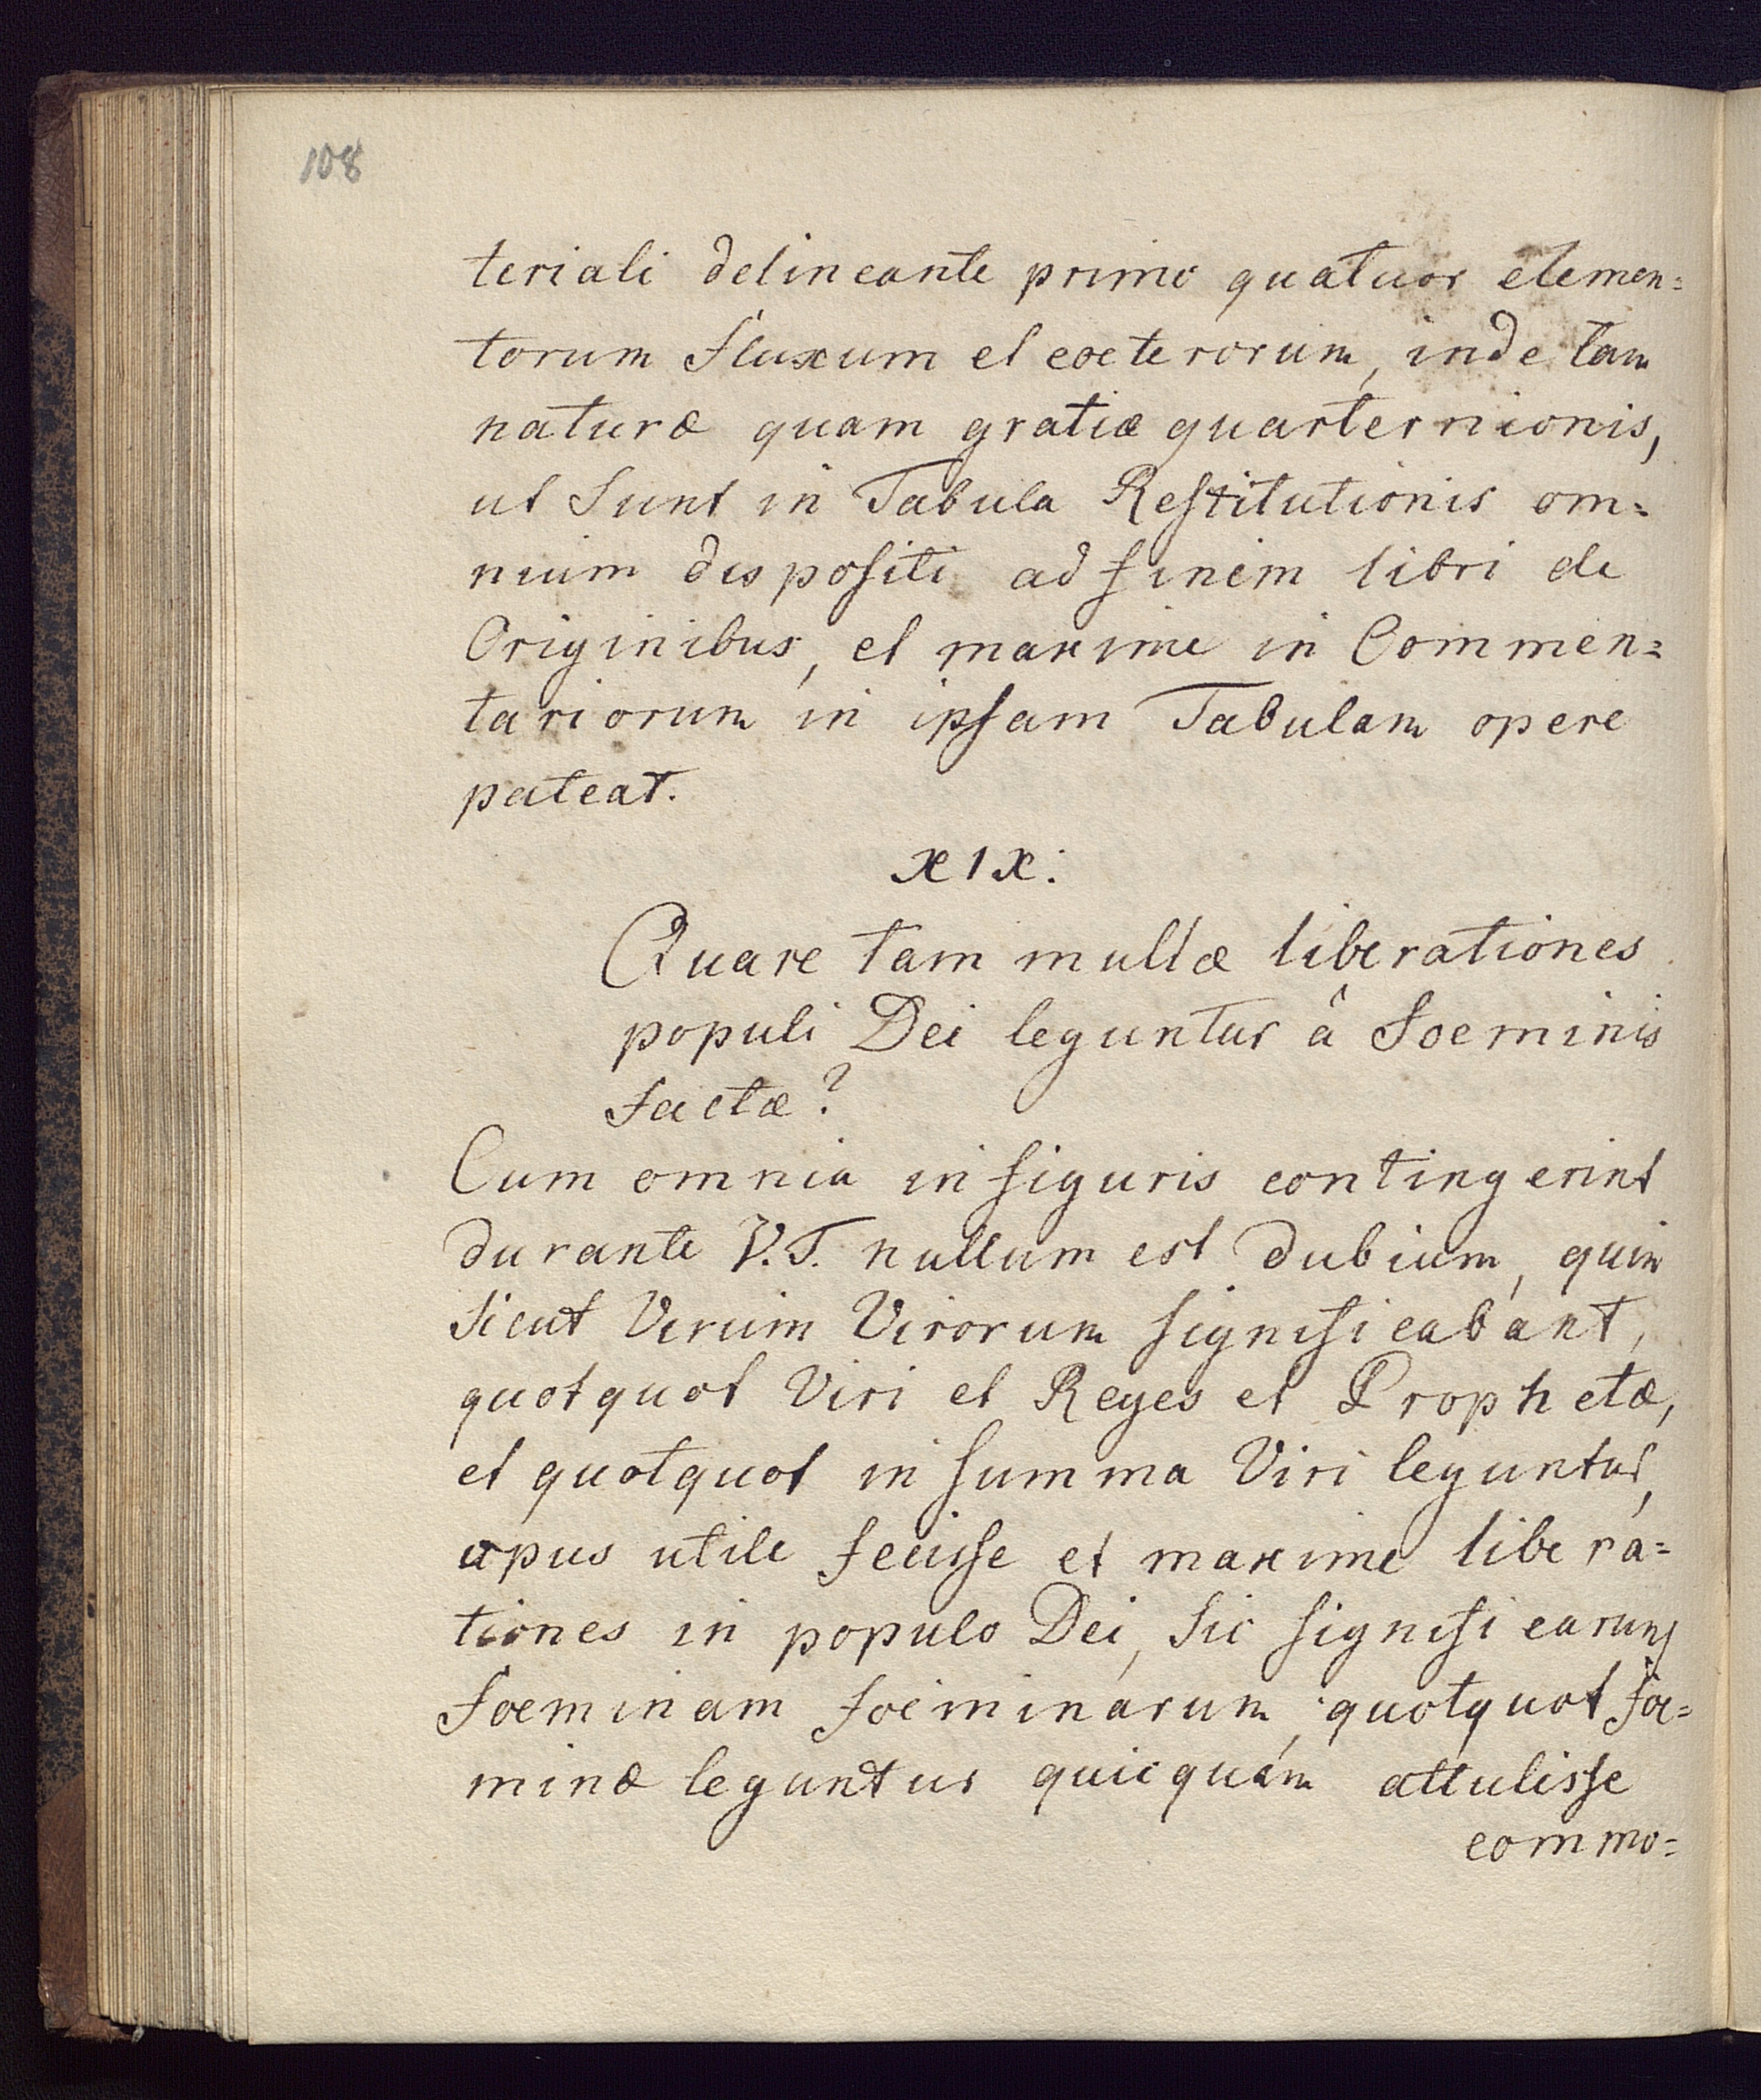 108
teriali delineante primo quatuor elemen=
torum fluxum et coeterorum, inde tam
naturæ quam gratiæ quarternionis,
ut sunt in Tabula Restitutionis om=
nium dispositi ad finem libri de
Originibus, et maxime in Commen=
tariorum in ipsam Tabulam opere
pateat.
XIX:
Quare tam multæ liberationes
populi Dei leguntur â foeminis
factæ?
Cum omnia in figuris contingerint
durante V.T. nullum est dubium, quin
sicut Virum Virorum significabant,
quotquot Viri et Reges et Prophetæ,
et quotquot in summa Viri leguntur,
opus utile fecisse et maxime libera=
tiones in populo Dei, sic significarunt
foeminam foeminarum, quotquot foe=
minæ leguntur quicquam attulisse
commo=